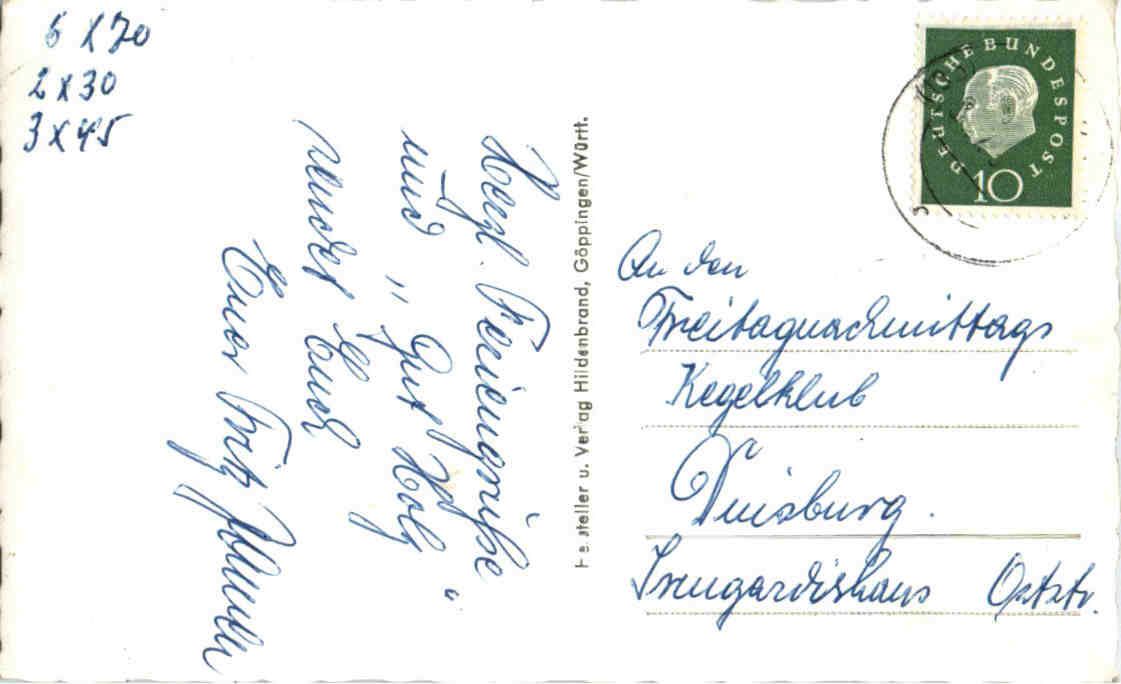 5 x 70
2 x 30
3 x 45
Herzl. Feriengrüße
und "Gut Holz"
sendet Euch
Euer Fritz
Hersteller u. Verlag Hildenbrand, Göppingen/Württ.
DEUTSCHE BUNDESPOST
10
An den
Freitagnachmittags
Kegelklub
Duisburg.
Irmgardishaus Oststr.